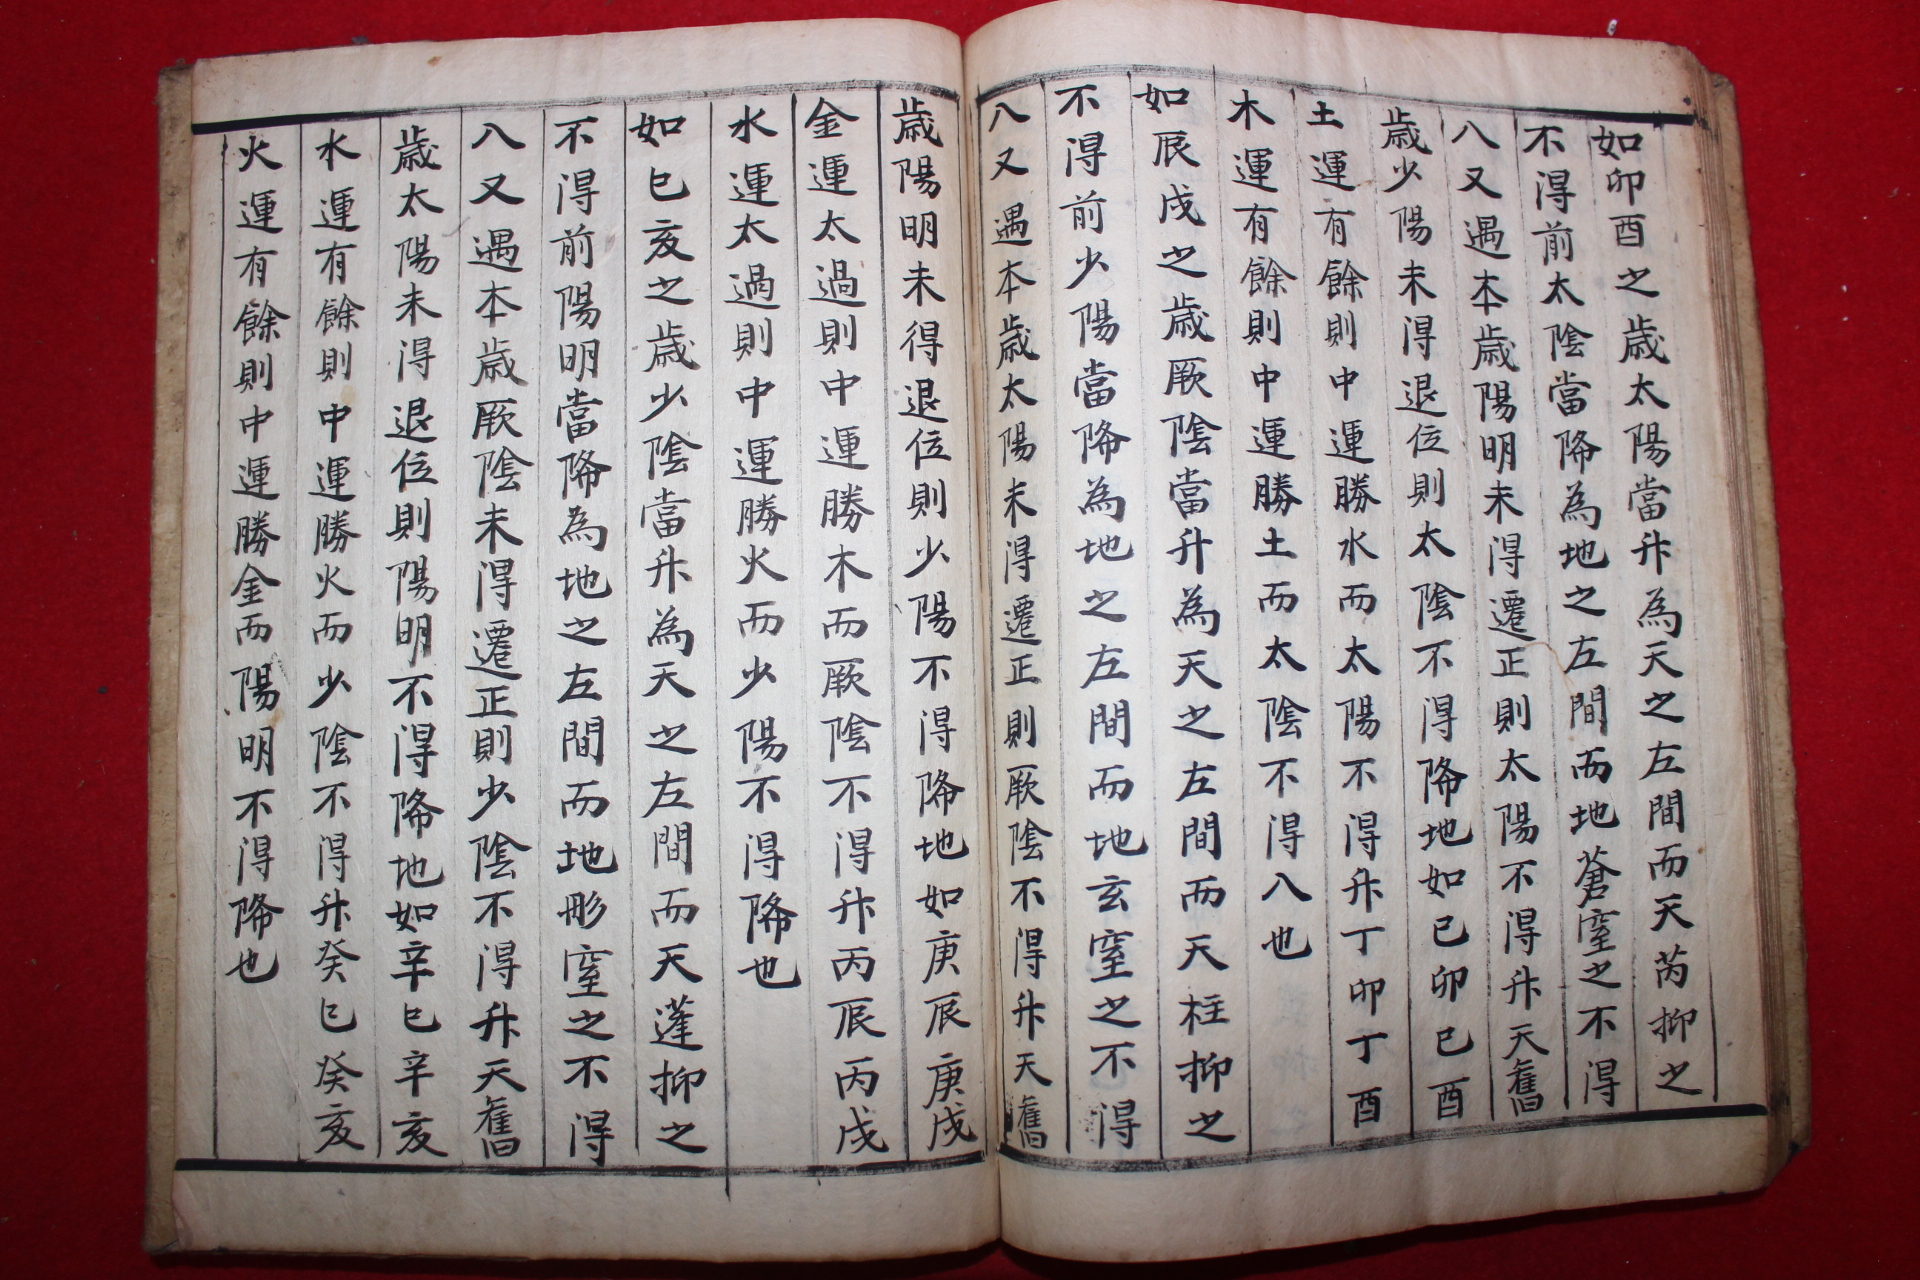 如卯酉之歲太陽當升為天之左間而天芮抑之
不得前太陰當降為地之左間而地蒼窒之不得
八又遇本歲陽明未得遷正則太陽不得升天舊
歲少陽未得退位則太陰不得降地如己卯己酉
土運有餘則中運勝水而太陽不得升丁卯丁酉
木運有餘則中運勝土而太陰不得八也
如辰戌之歲厥陰當升為天之左間而天柱抑之
不得前少陽當降為地之左間而地玄窒之不得
八又遇本歲太陽未得遷正則厥陰不得升天舊
歲陽明未得退位則少陽不得降地如庚辰庚戌
金運太過則中運勝木而厥陰不得升丙辰丙戌
水運太過則中運勝火而少陽不得降也
如巳亥之歲少陰當升為天之左間而天蓬抑之
不得前陽明當降為地之左間而地彤窒之不得
八又遇本歲厥陰未得遷正則少陰不得升天舊
歲太陽未得退位則陽明不得降地如辛巳辛亥
水運有餘則中運勝火而少陰不得升癸巳癸亥
火運有餘則中運勝金而陽明不得降也